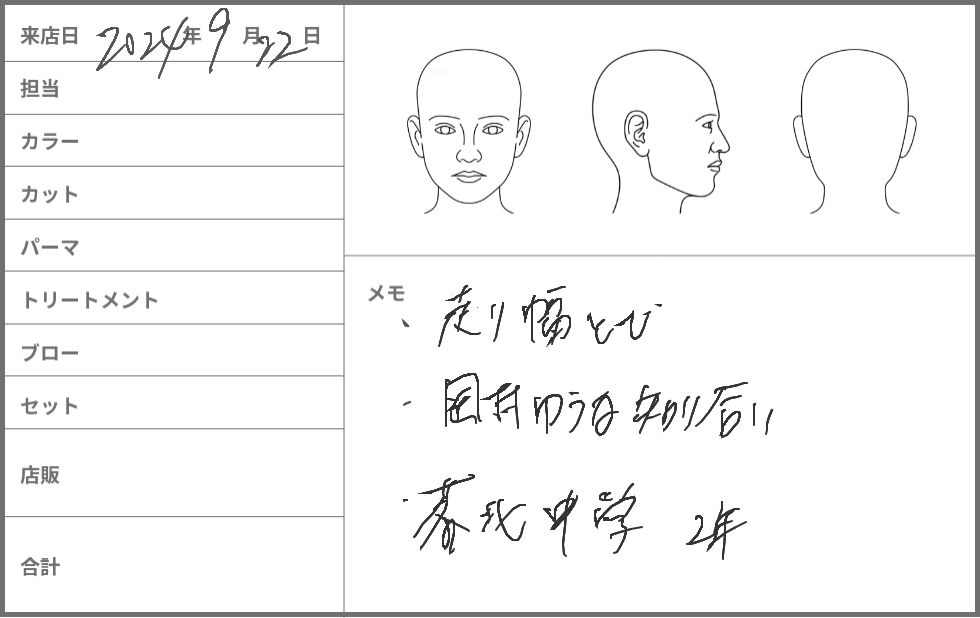 来店日 2024年9月22日
担当
カラー
カット
パーマ
トリートメント
ブロー
セット
店販
合計
メモ
・走り幅とび
・国村ゆうな 知り合い
・中学 2年